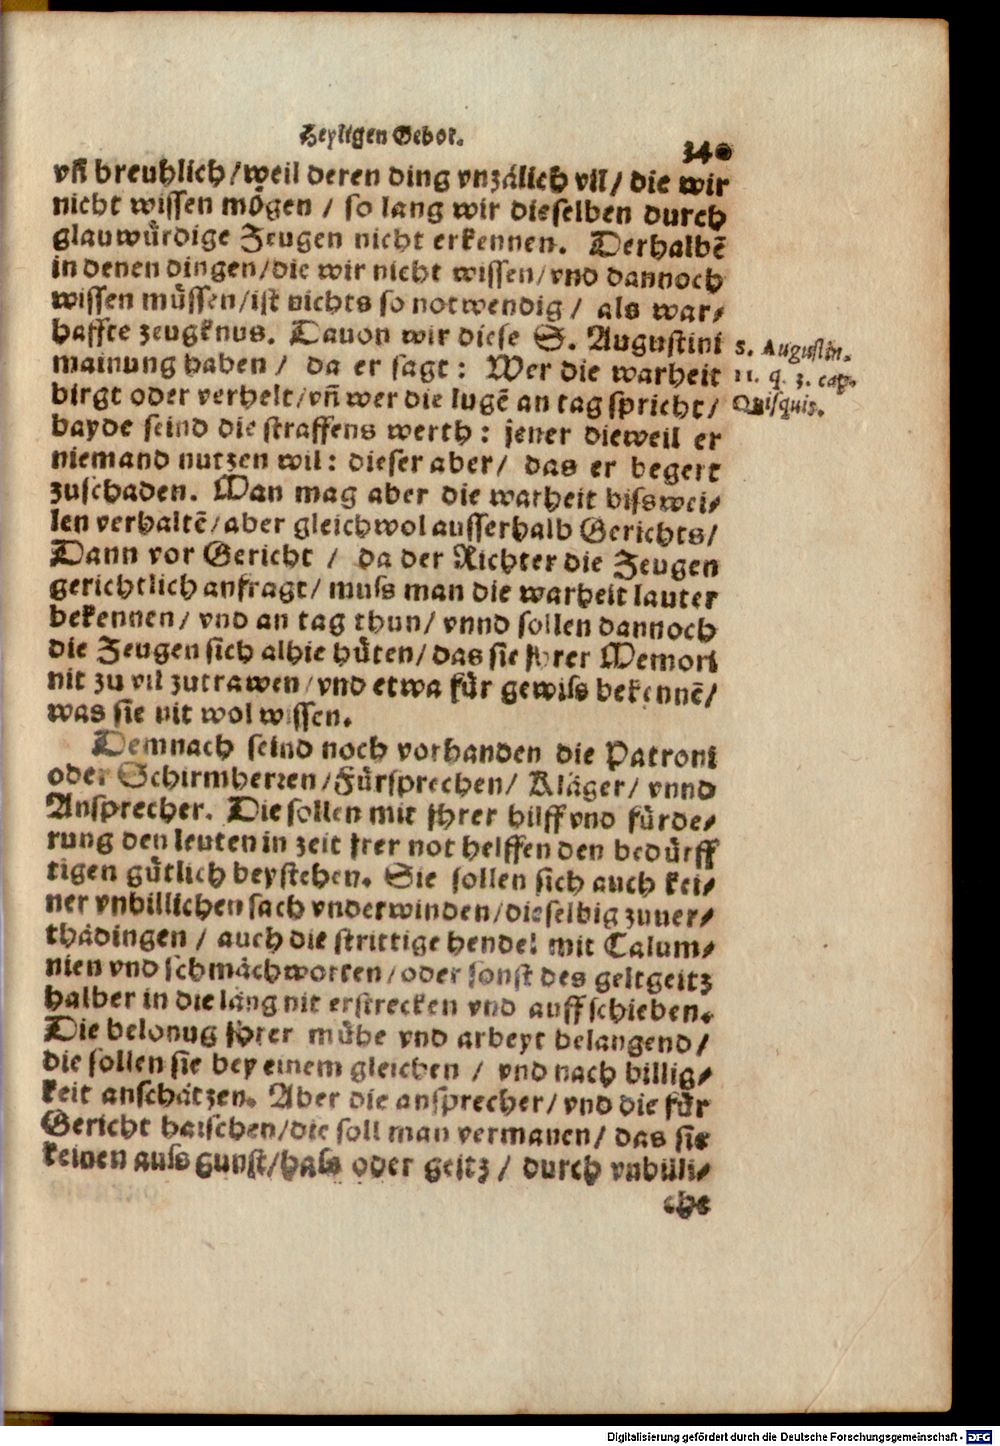 Heyligen Gebot.
340
vñ breuhlich/weil deren ding vnzälich vil/ die wir
nicht wissen mögen / so lang wir dieselben durch
glauwürdige Zeugen nicht erkennen. Derhalbē
in denen dingen/die wir nicht wissen/vnd dannoch
wissen müssen/ist nichts so notwendig / als war-
haffte zeugknus. Dauon wir diese S. Augustini
mainung haben / da er sagt: Wer die warheit
birgt oder verhelt/vñ wer die lugē an tag spricht/
bayde seind die straffens werth: jener dieweil er
niemand nutzen wil: dieser aber/ das er begert
zuschaden. Man mag aber die warheit bisswei-
len verhaltē/aber gleichwol ausserhalb Gerichts/
Dann vor Gericht / da der Richter die Zeugen
gerichtlich anfragt/ muss man die warheit lauter
bekennen/ vnd an tag thun/ vnnd sollen dannoch
die Zeugen sich alhie hüten/das sie jhrer Memori
nit zu vil zutrawen/vnd etwa für gewiss bekennē/
was sie nit wol wissen.
Demnach seind noch vorhanden die Patroni
oder Schirmherren/Fürsprechen/ Kläger/ vnnd
Ansprecher. Die sollen mit jhrer hilff vnd fürde-
rung den leuten in zeit jrer not helffen den bedürff
tigen gütlich beystehen. Sie sollen sich auch kei-
ner vnbillichen sach vnderwinden/dieselbig zuuer-
thädingen / auch die strittige hendel mit Calum-
nien vnd schmächworten/oder sonst des geltgeitz
halber in die läng nit erstrecken vnd auffschieben.
Die belonug jhrer mühe vnd arbeyt belangend/
die sollen sie bey einem gleichen / vnd nach billig-
keit anschätzen. Aber die ansprecher/ vnd die für
Gericht haischen/die soll man vermanen/ das sie
keinen auss gunst/hass oder geitz / durch vnbilli-
che
S. Augustin.
11. q. 3. cap.
Quisquis.
Digitalisierung gefördert durch die Deutsche Forschungsgemeinschaft - DFG